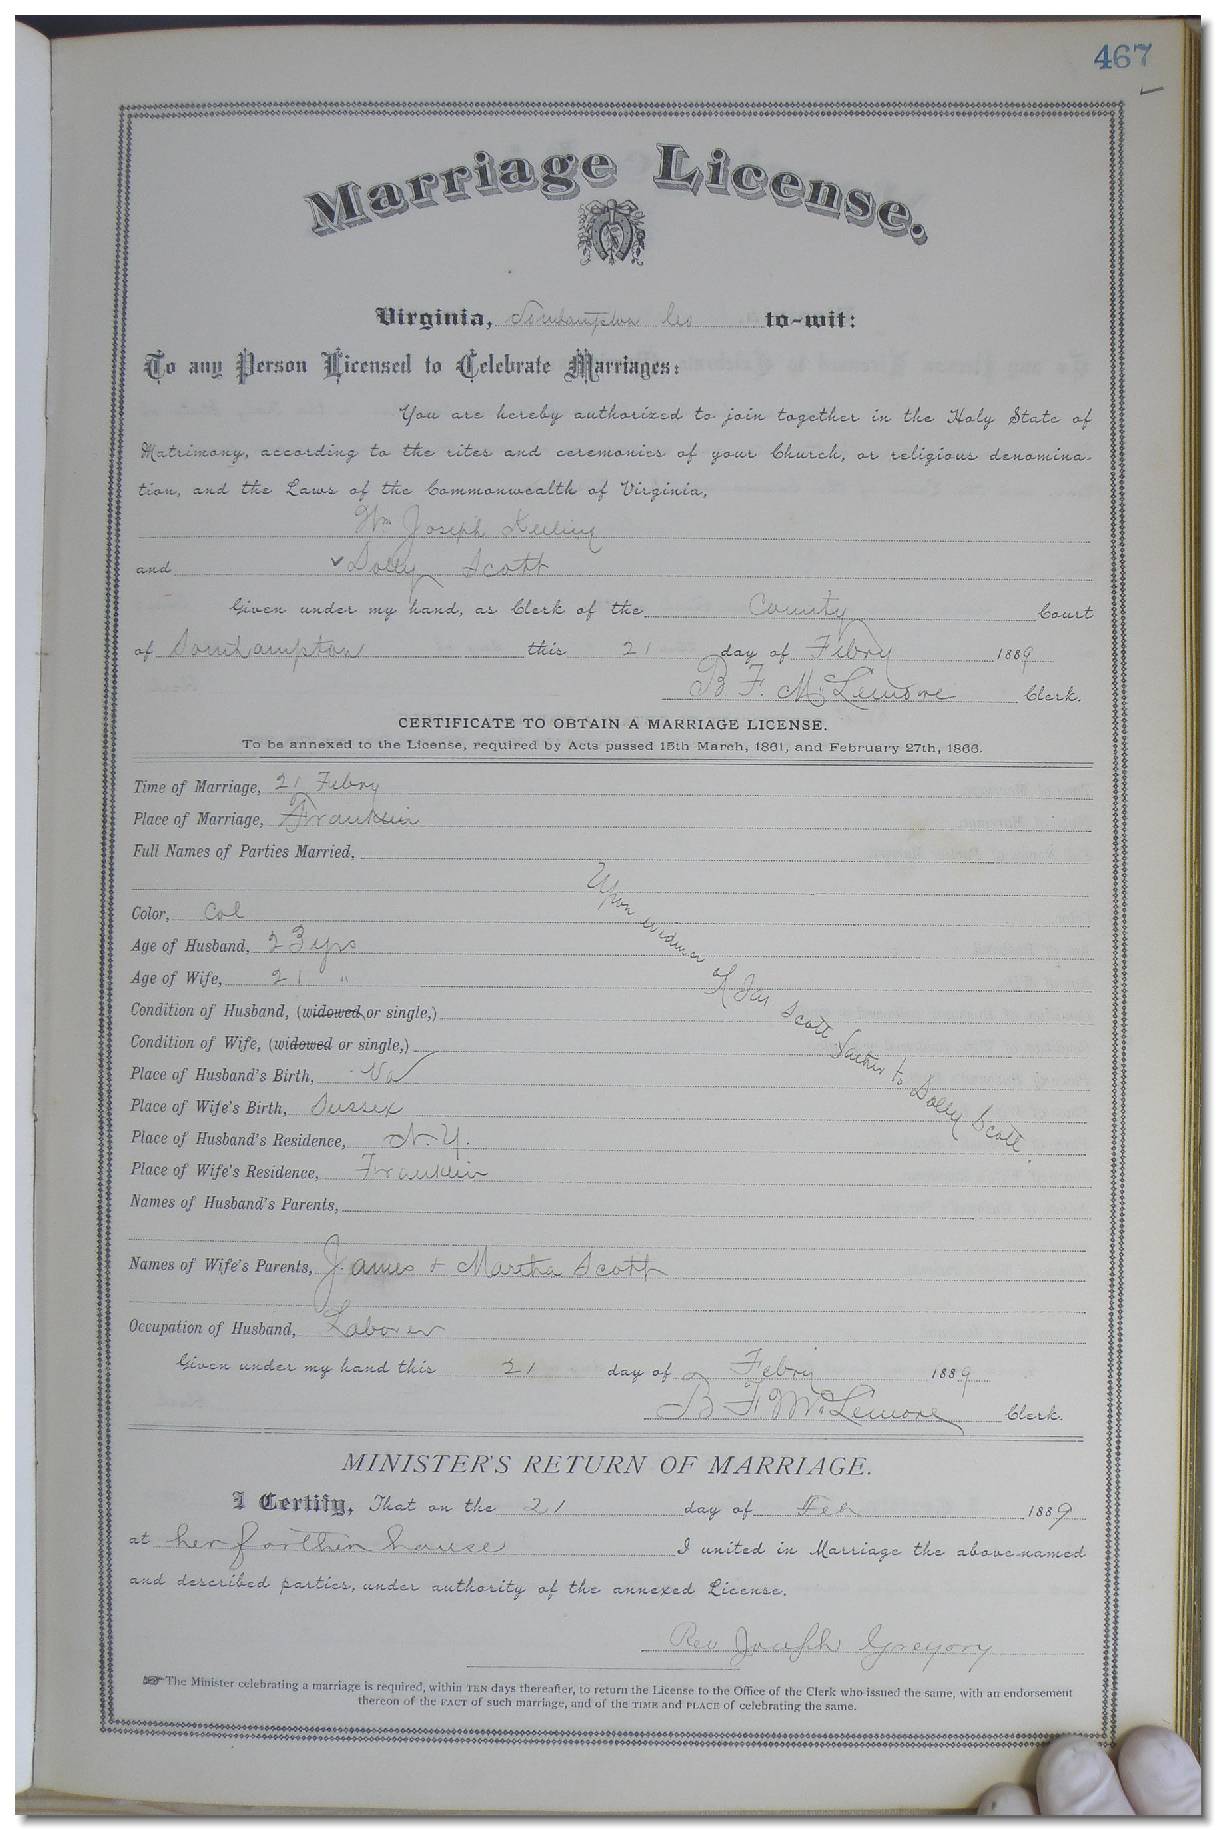 467
Marriage License.
Virginia, Southampton Co to-wit:
To any Person Licensed to Celebrate Marriages:
You are hereby authorized to join together in the Holy State of
Matrimony, according to the rites and ceremonies of your Church, or religious denomina-
tion, and the Laws of the Commonwealth of Virginia,
Wm Joseph Keeling
and Dolly Scott
Given under my hand, as Clerk of the County Court
of Southampton this 21 day of Febry 1889
B. F. McLemore Clerk.
CERTIFICATE TO OBTAIN A MARRIAGE LICENSE.
To be annexed to the License, required by Acts passed 15th March, 1861, and February 27th, 1866.
Time of Marriage, 21 Febry
Place of Marriage, Franklin
Full Names of Parties Married,
Color, Col
Age of Husband, 23 yrs
Age of Wife, 21 "
Condition of Husband, (widowed or single,)
Condition of Wife, (widowed or single,)
Place of Husband's Birth, Va
Place of Wife's Birth, Sussex
Place of Husband's Residence, N. Y.
Place of Wife's Residence, Franklin
Names of Husband's Parents,
Names of Wife's Parents, James & Martha Scott
Occupation of Husband, Laborer
Upon of Jas Scott father to Dolly Scott.
Given under my hand this 21 day of Febry 1889
B F. McLemore Clerk.
MINISTER'S RETURN OF MARRIAGE.
I Certify, That on the 21 day of Feb 1889
at her house I united in Marriage the above-named
and described parties, under authority of the annexed License.
Rev Joseph Gregory
The Minister celebrating a marriage is required, within TEN days thereafter, to return the License to the Office of the Clerk who issued the same, with an endorsement
thereon of the FACT of such marriage, and of the TIME and PLACE of celebrating the same.